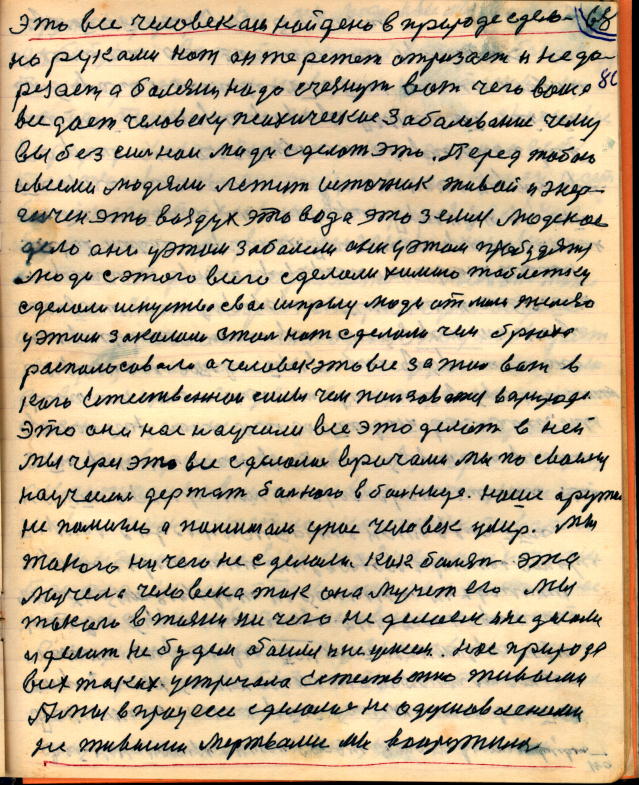 Это все человеком найдено в природе сдела- 68
но руками нож он те режет отризает и не до
резает, а болязнь надо счезнут вот чего воно 80
все дает человеку психическое забалевание чему
вы без сильнои люди сделали это. Перед тобою
и всеми людями лежит источник живой и энер-
гичен это воздух это вода это земля людское
дело они у этом заболели они у этом пробудятся
люди с этого всего сделали химию таблетку
сделали искуство свое шприц люди отлили железо
у этом закололи стал нож сделали чем брюхо
распольсовали а человек это все за тою в
кого естественнои силы чем ползоватся в природе
Это они нас научили все это делат в ней
мы через это все сделали врачами мы по своему
научили держат болного в болнице. наше оружие
не помогло а у нас человек умер. Мы
такого ничего не сделали как болял эта
мучела человека так она мучет его мы
такого в жизни ни чего не делаем и не делали
и делат не будем и не умеем. нас природа
всех таких устречала естествено живыми
А мы в процесе сделалис не одухновленыи
не живыми мертвами мы вооружили